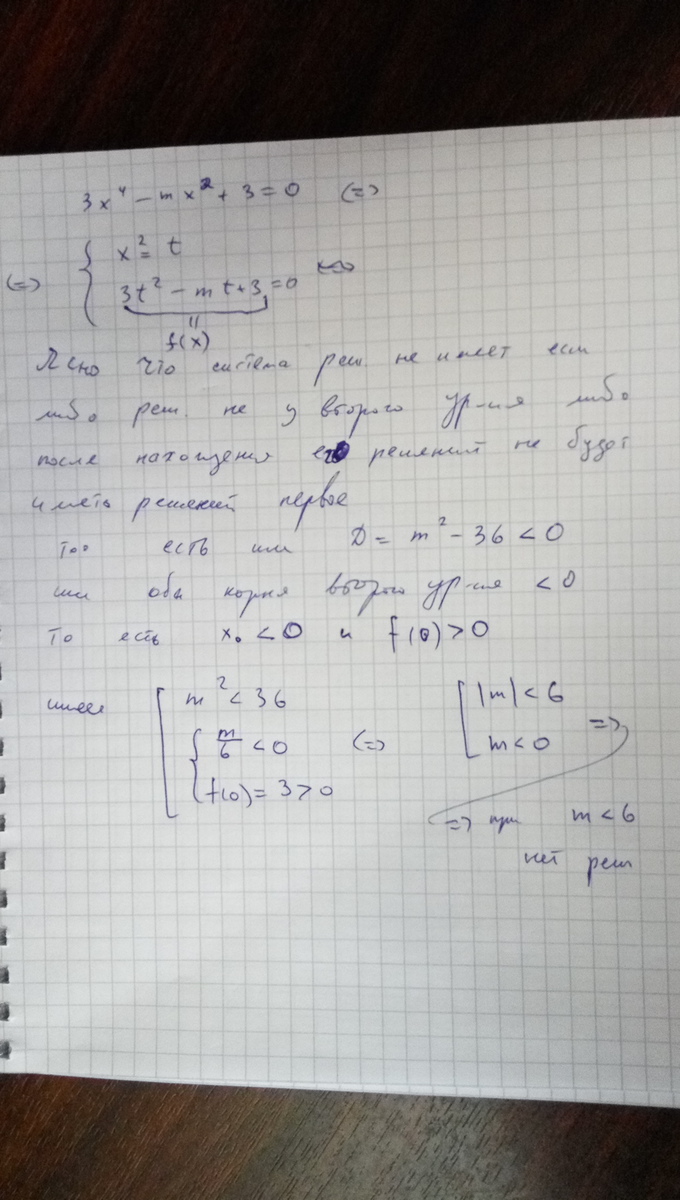 3x⁴ - mx² + 3 = 0 (=>
(=> { x² = t
3t² - mt + 3 = 0 <=>
f(x)
Ясно что система реш. не имеет если
либо реш. не у второго ур-ия либо
после нахождения его решений не будет
иметь решений первое
То есть или D = m² - 36 < 0
или оба корня второго ур-ия < 0
То есть x₀ < 0 и f(0) > 0
имеем [ m² < 36 [ |m| < 6
{ m/6 < 0 (=> m < 0 =>
f(0) = 3 > 0
=> при m < 6
нет реш